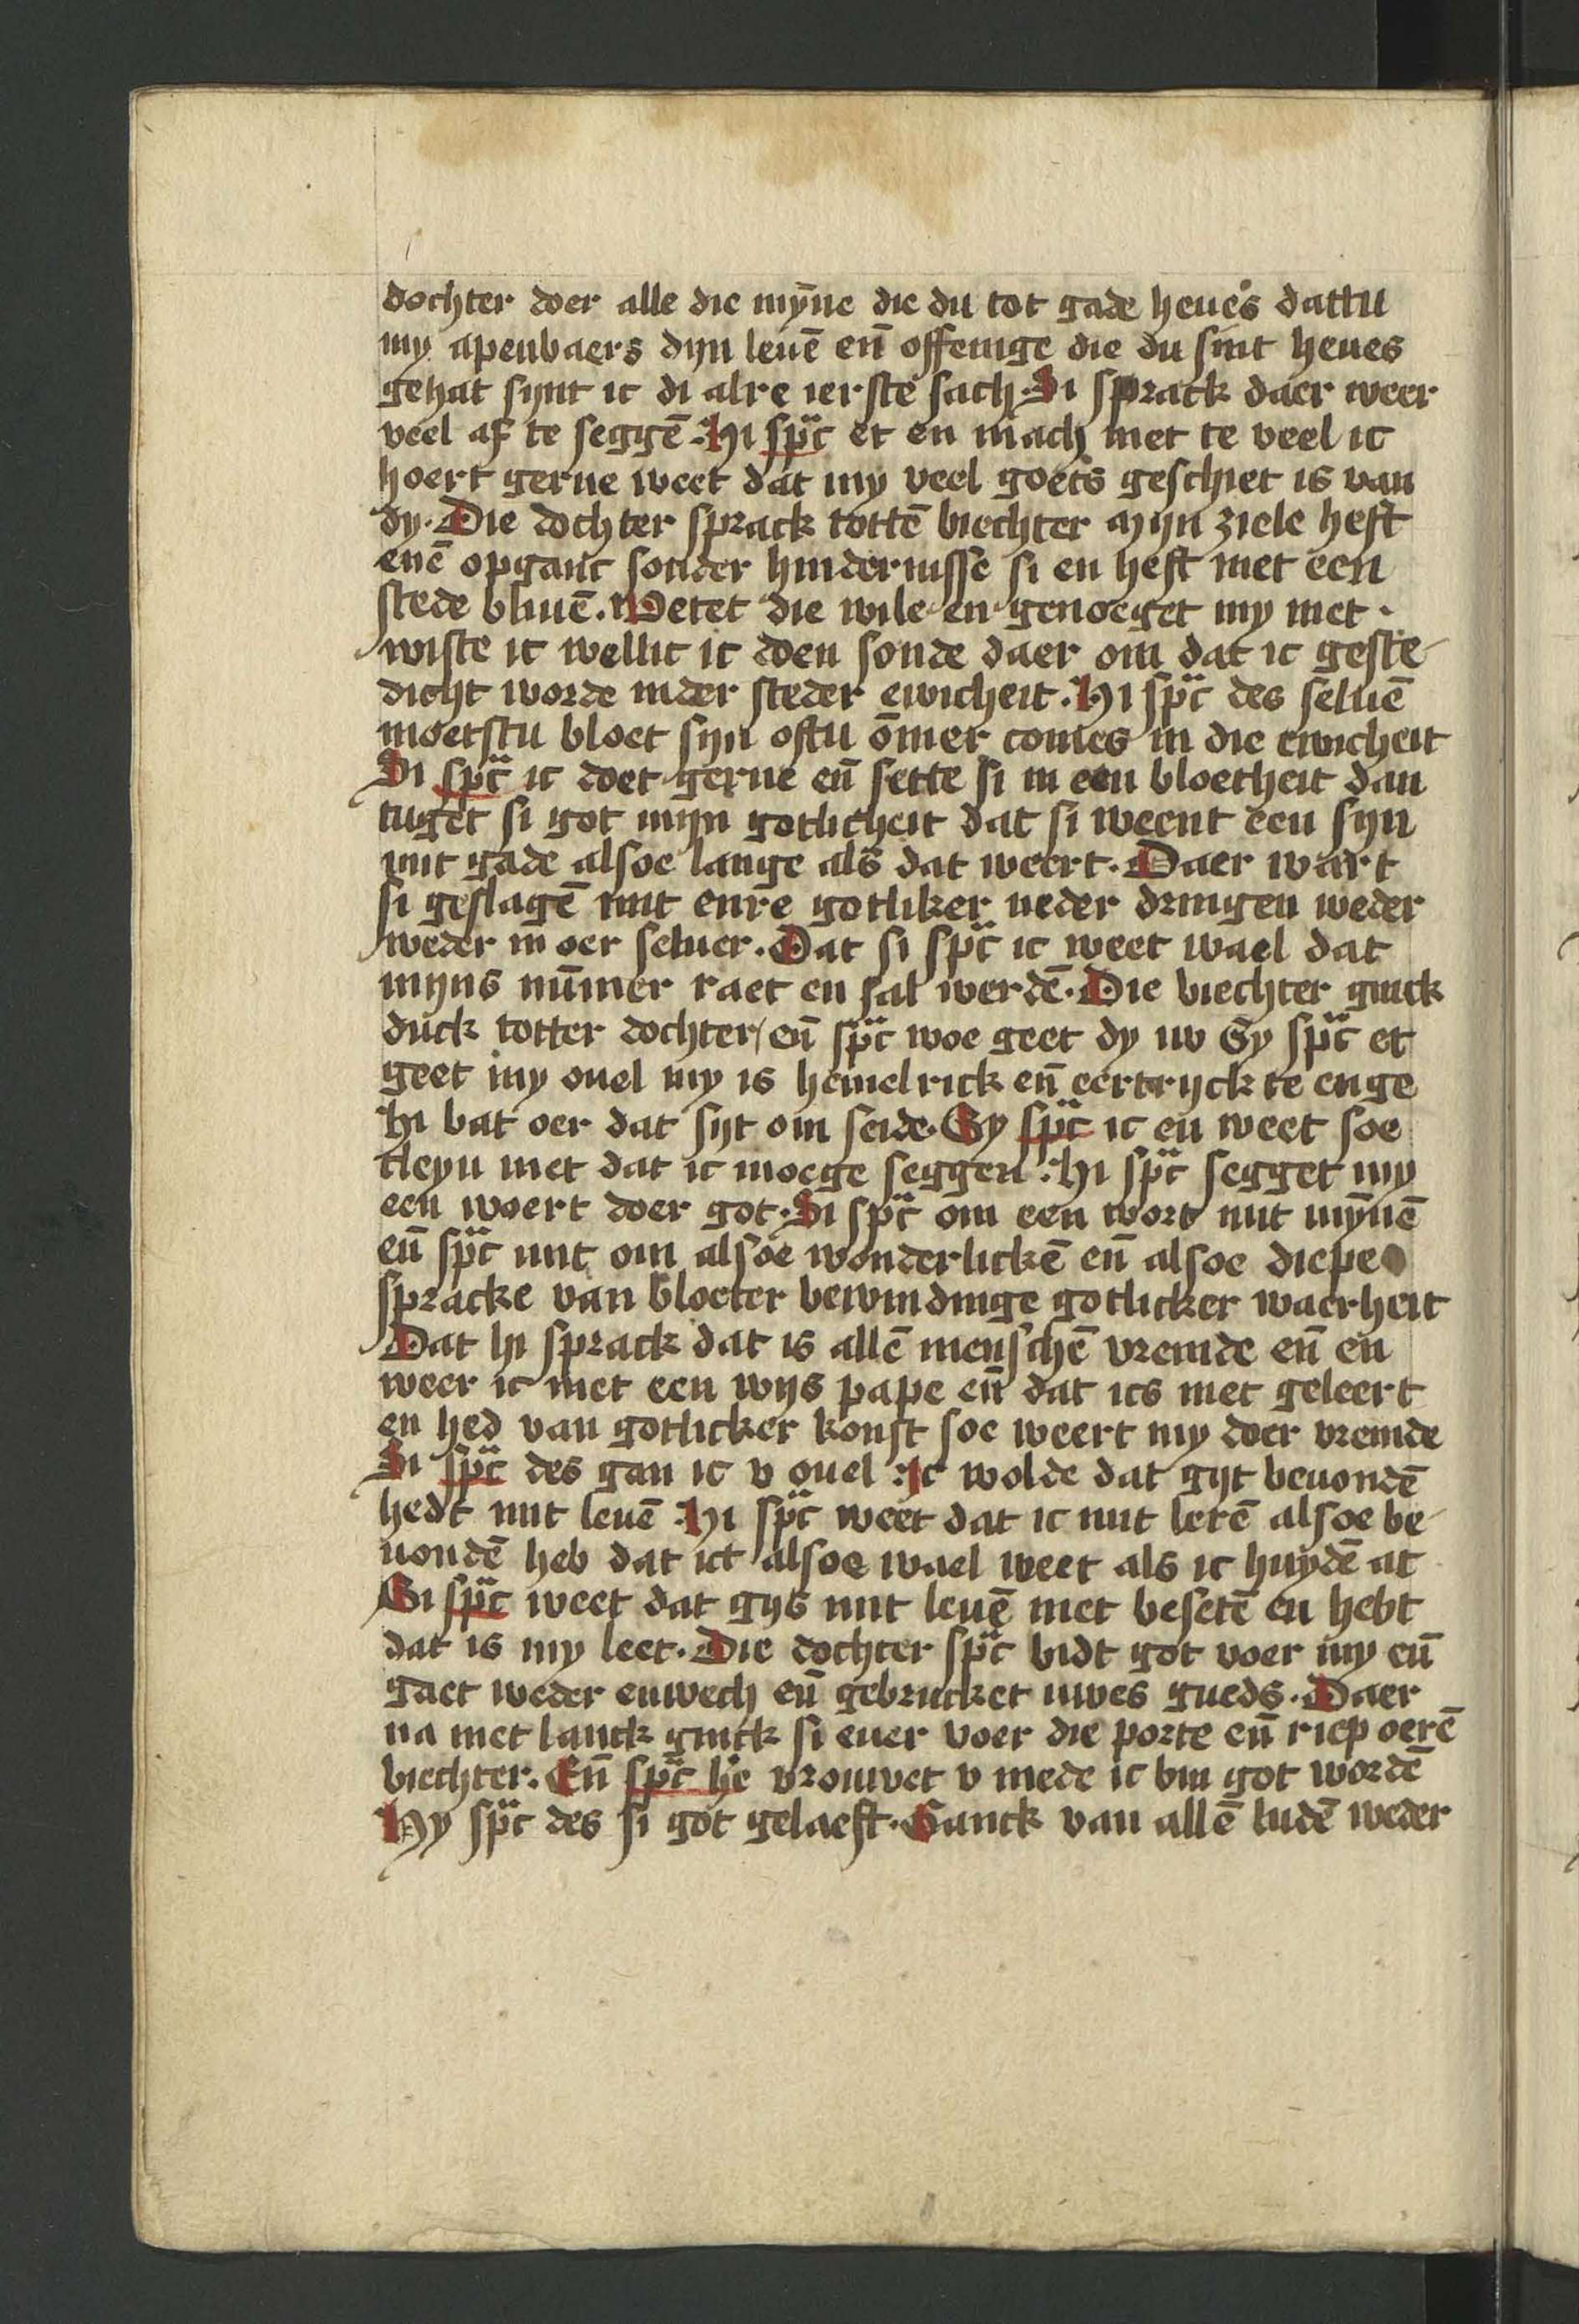 dochter doer alle die mȳne die du tot gade heues dattu
my apenbaers dyn leuē en̄ offenige die du sint heues
gehat synt ic di alre ierste sach. Si sprack daer weer
veel af te seggē. Hi sp̈c et en mach niet te veel ic
hoert gerne weet dat my veel goets geschiet is van
dy. Die dochter sprack tottē biechter Mijn ziele heft
enē opganc sonder hindernisse si en heft niet een
stede bliuē. Wetet die wile en genoeget my niet.
wiste ic wellic ic doen sonde daer om dat ic geste-
dicht worde inder steder ewicheit. Hi sp̈c des seluē
moetstu bloet syn oftu ōmer comes in die ewicheit
Si sp̈c ic doet gerne en̄ sette si in een bloetheit dan
tuget si got inyn gotlicheit dat si weent een syn
mit gade alsoe lange als dat weert. Daer wart
si geslagē mit enre gotliker neder dringen weder
weder in oer seluer. Dat si sp̈c ic weet wael dat
myns nūmer raet en sal werdē. Die biechter ginck
duck totter dochter / en̄ sp̈c woe geet dy nv Sy sp̈c et
geet my ouel my is hemelrick en̄ eertryck te enge
Hi bat oer dat syt om seide. Sy sp̈c ic en weet soe
cleyn niet dat ic moege seggen. Hi sp̈c segget my
een woert doer got. Si sp̈c om een wort mit mȳnē
en̄ sp̈c mit om alsoe wonderlickē en̄ alsoe diepe
spracke van bloeter bewindinge gotlicker waerheit
Dat hi sprack dat is allē menschē vremde en̄ en
weer ic niet een wys pape en̄ dat ics niet geleert
en hed van gotlicker konst soe weert my doer vremde
Si sp̈c des gan ic v ouel. Ic wolde dat gyt beuondē
hedt mit leuē Hi sp̈c weet dat ic mit letē alsoe be-
uondē heb dat ict alsoe wael weet als ic huydē at
Si sp̈c weet dat gys mit leuē niet besetē en hebt
dat is my leet. Die dochter sp̈c bidt got voer my en̄
gaet weder enwech en̄ gebrucket uwes gueds. Daer
na niet lanck ginck si euer voer die porte en̄ riep oerē
biechter. En̄ sp̈c he vrouwet v mede ic bin got wordē
Hy sp̈c des si got gelaeft. Ganck van allē ludē weder